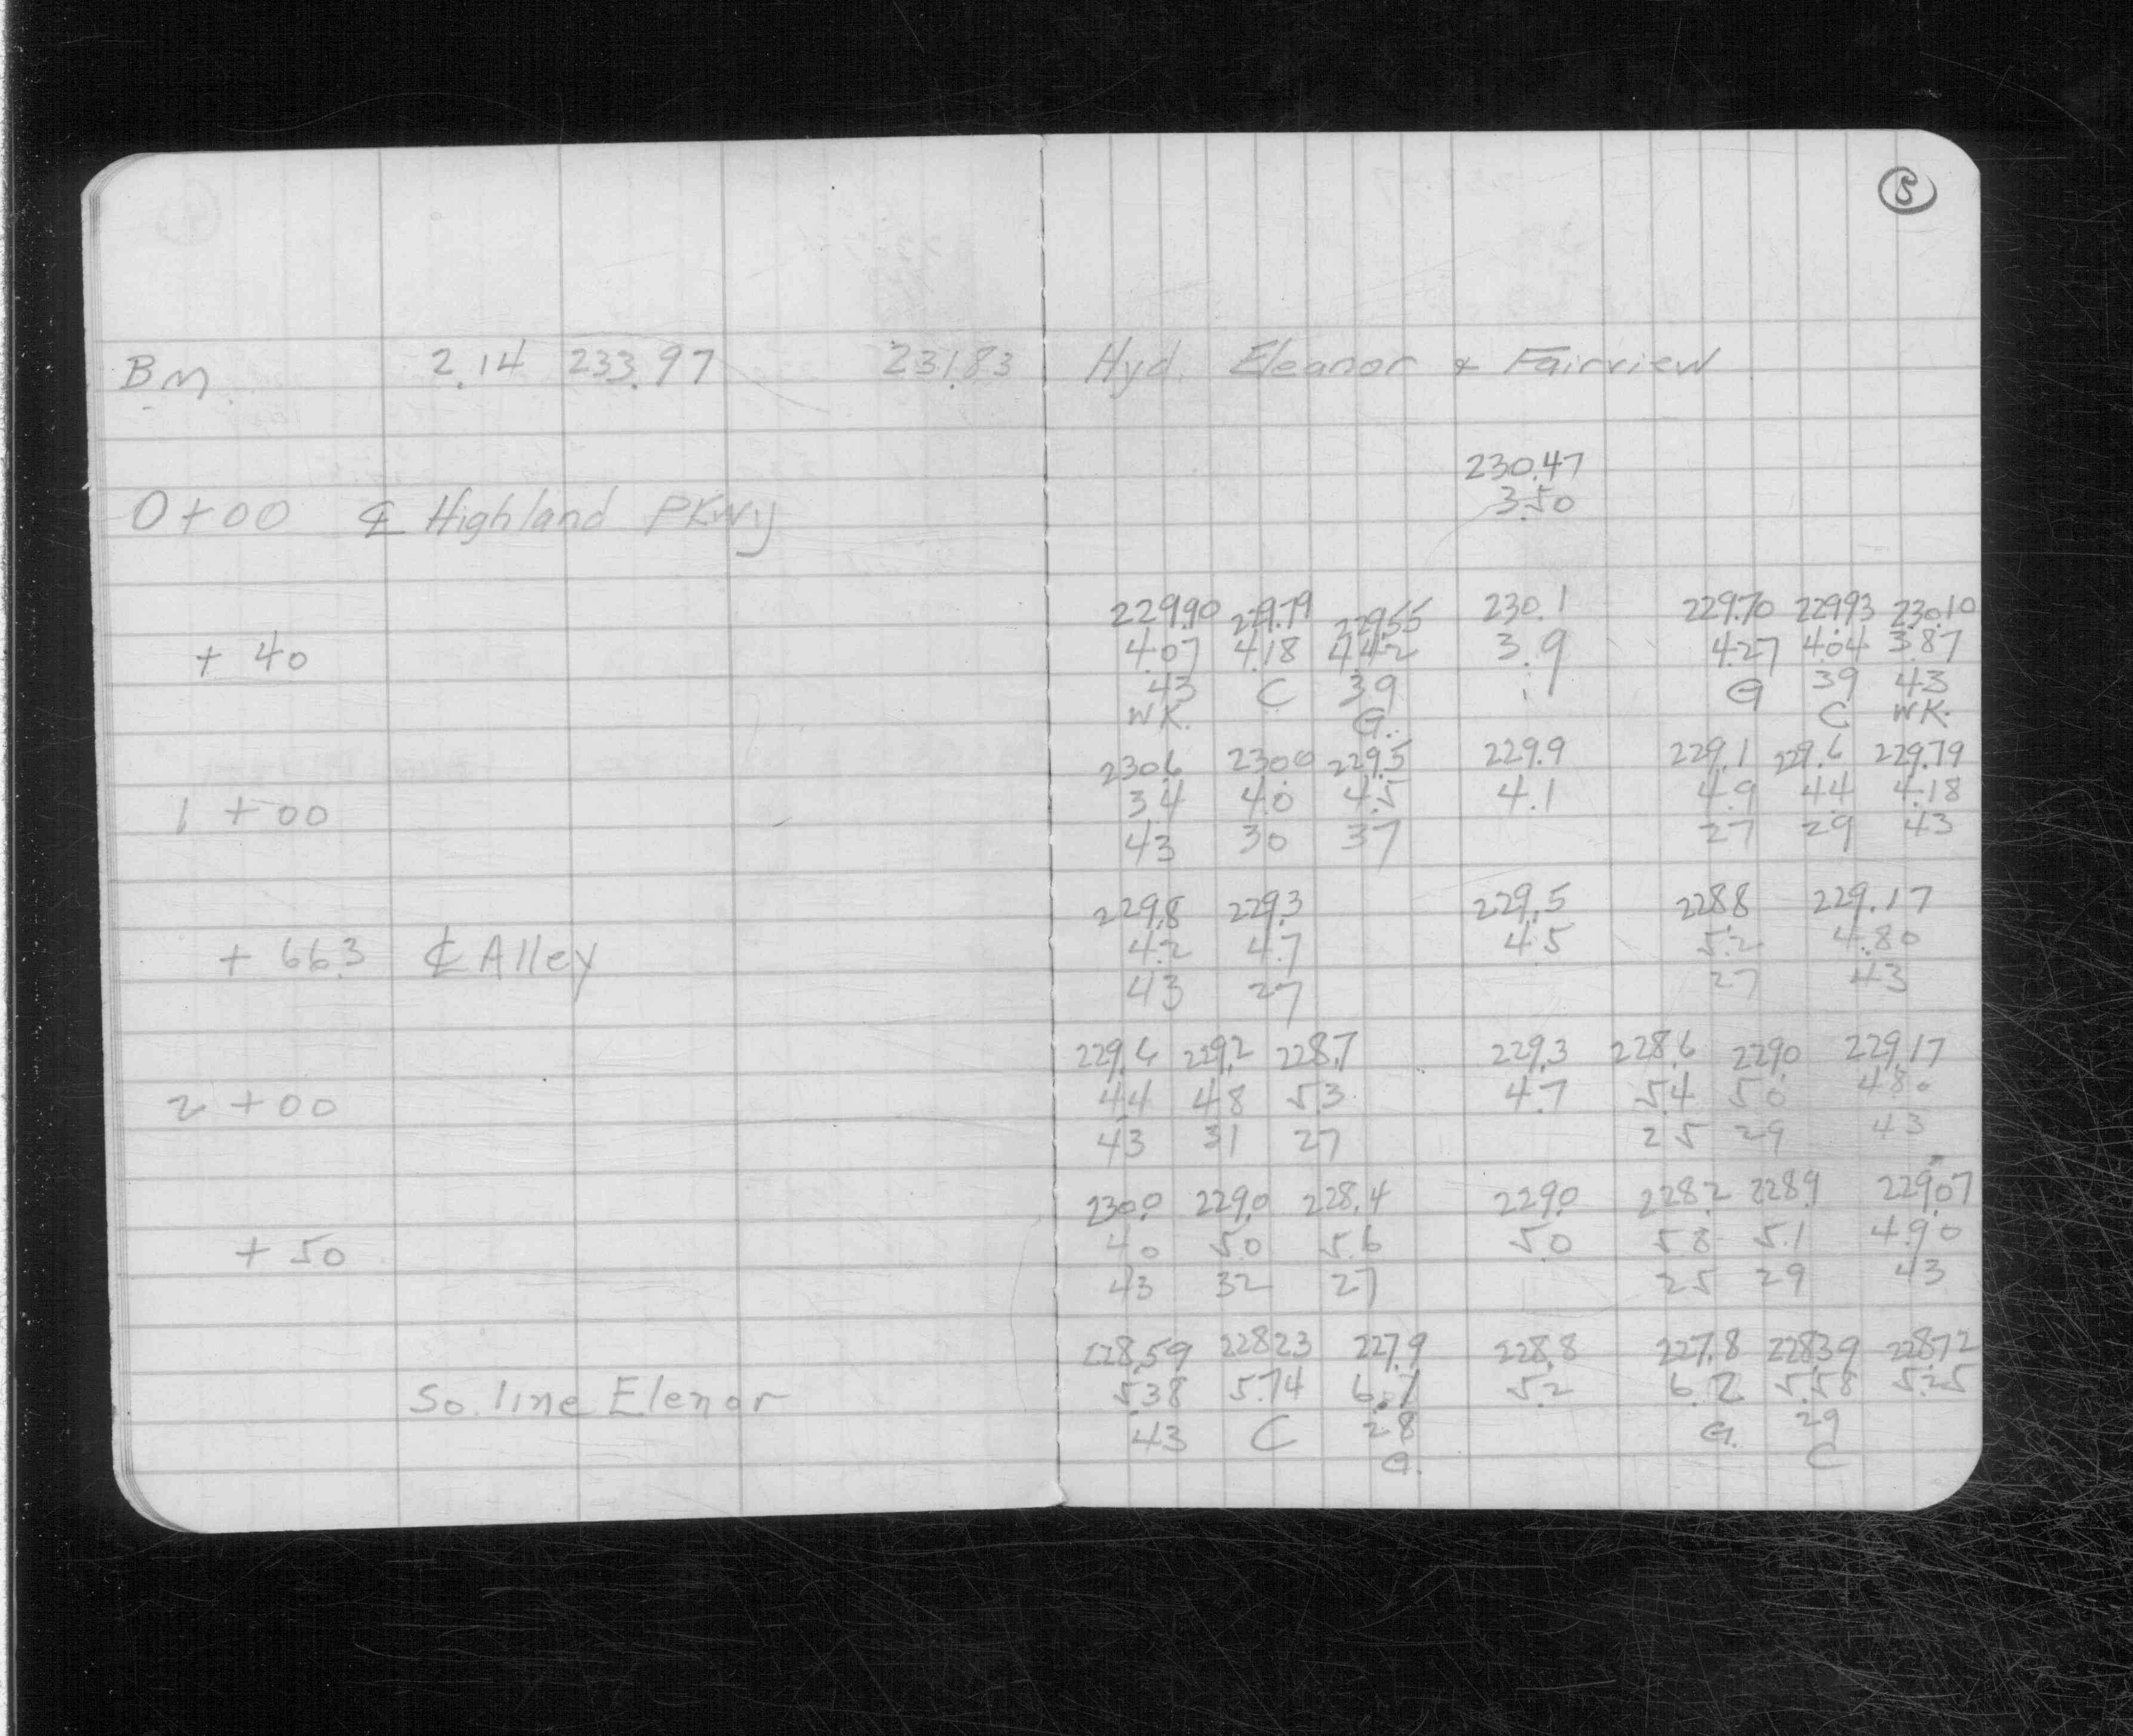 5
BM 2.14 233.97 231.83 Hyd. Eleanor & Fairview
230.47
3.50
0+00 ℄ Highland PKwy
229.90 229.79 229.55 230.1 229.70 229.93 230.10
+ 40 4.07 4.18 4.42 3.9 4.27 4.04 3.87
43 C 39 G 39 43
WK. G. C WK.
230.6 230.0 229.5 229.9 229.1 229.6 229.79
1 + 00 3.4 4.0 4.5 4.1 4.9 4.4 4.18
43 30 37 27 29 43
229.8 229.3 229.5 228.8 229.17
+ 66.3 ℄ Alley 4.2 4.7 4.5 5.2 4.80
43 27 27 43
229.6 229.2 228.7 229.3 228.6 229.0 229.17
2 + 00 4.4 4.8 5.3 4.7 5.4 5.0 4.80
43 31 27 25 29 43
230.0 229.0 228.4 229.0 228.2 228.9 229.07
+ 50 4.0 5.0 5.6 5.0 5.8 5.1 4.90
43 32 27 25 29 43
228.59 228.23 227.9 228.8 227.8 228.39 228.72
So. line Elenor 5.38 5.74 6.1 5.2 6.2 5.58 5.25
43 C 28 G. 29
G. C